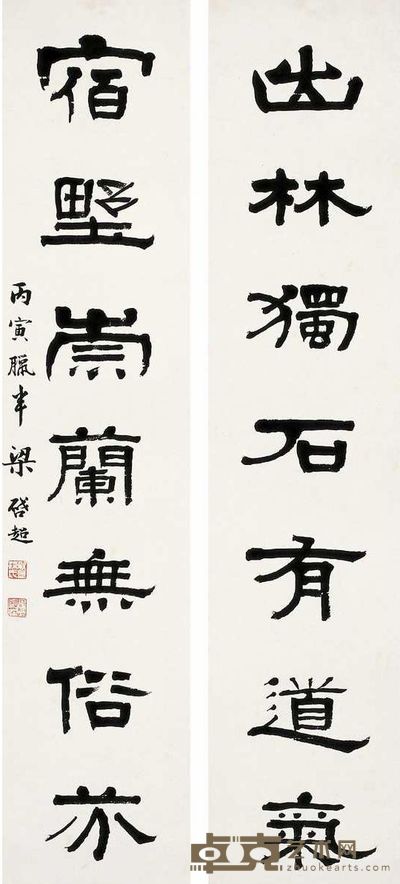 出林獨石有道氣
宿野崇蘭無俗亦
丙寅臘半 梁啓超
卓克艺术网
zhuokearts.com